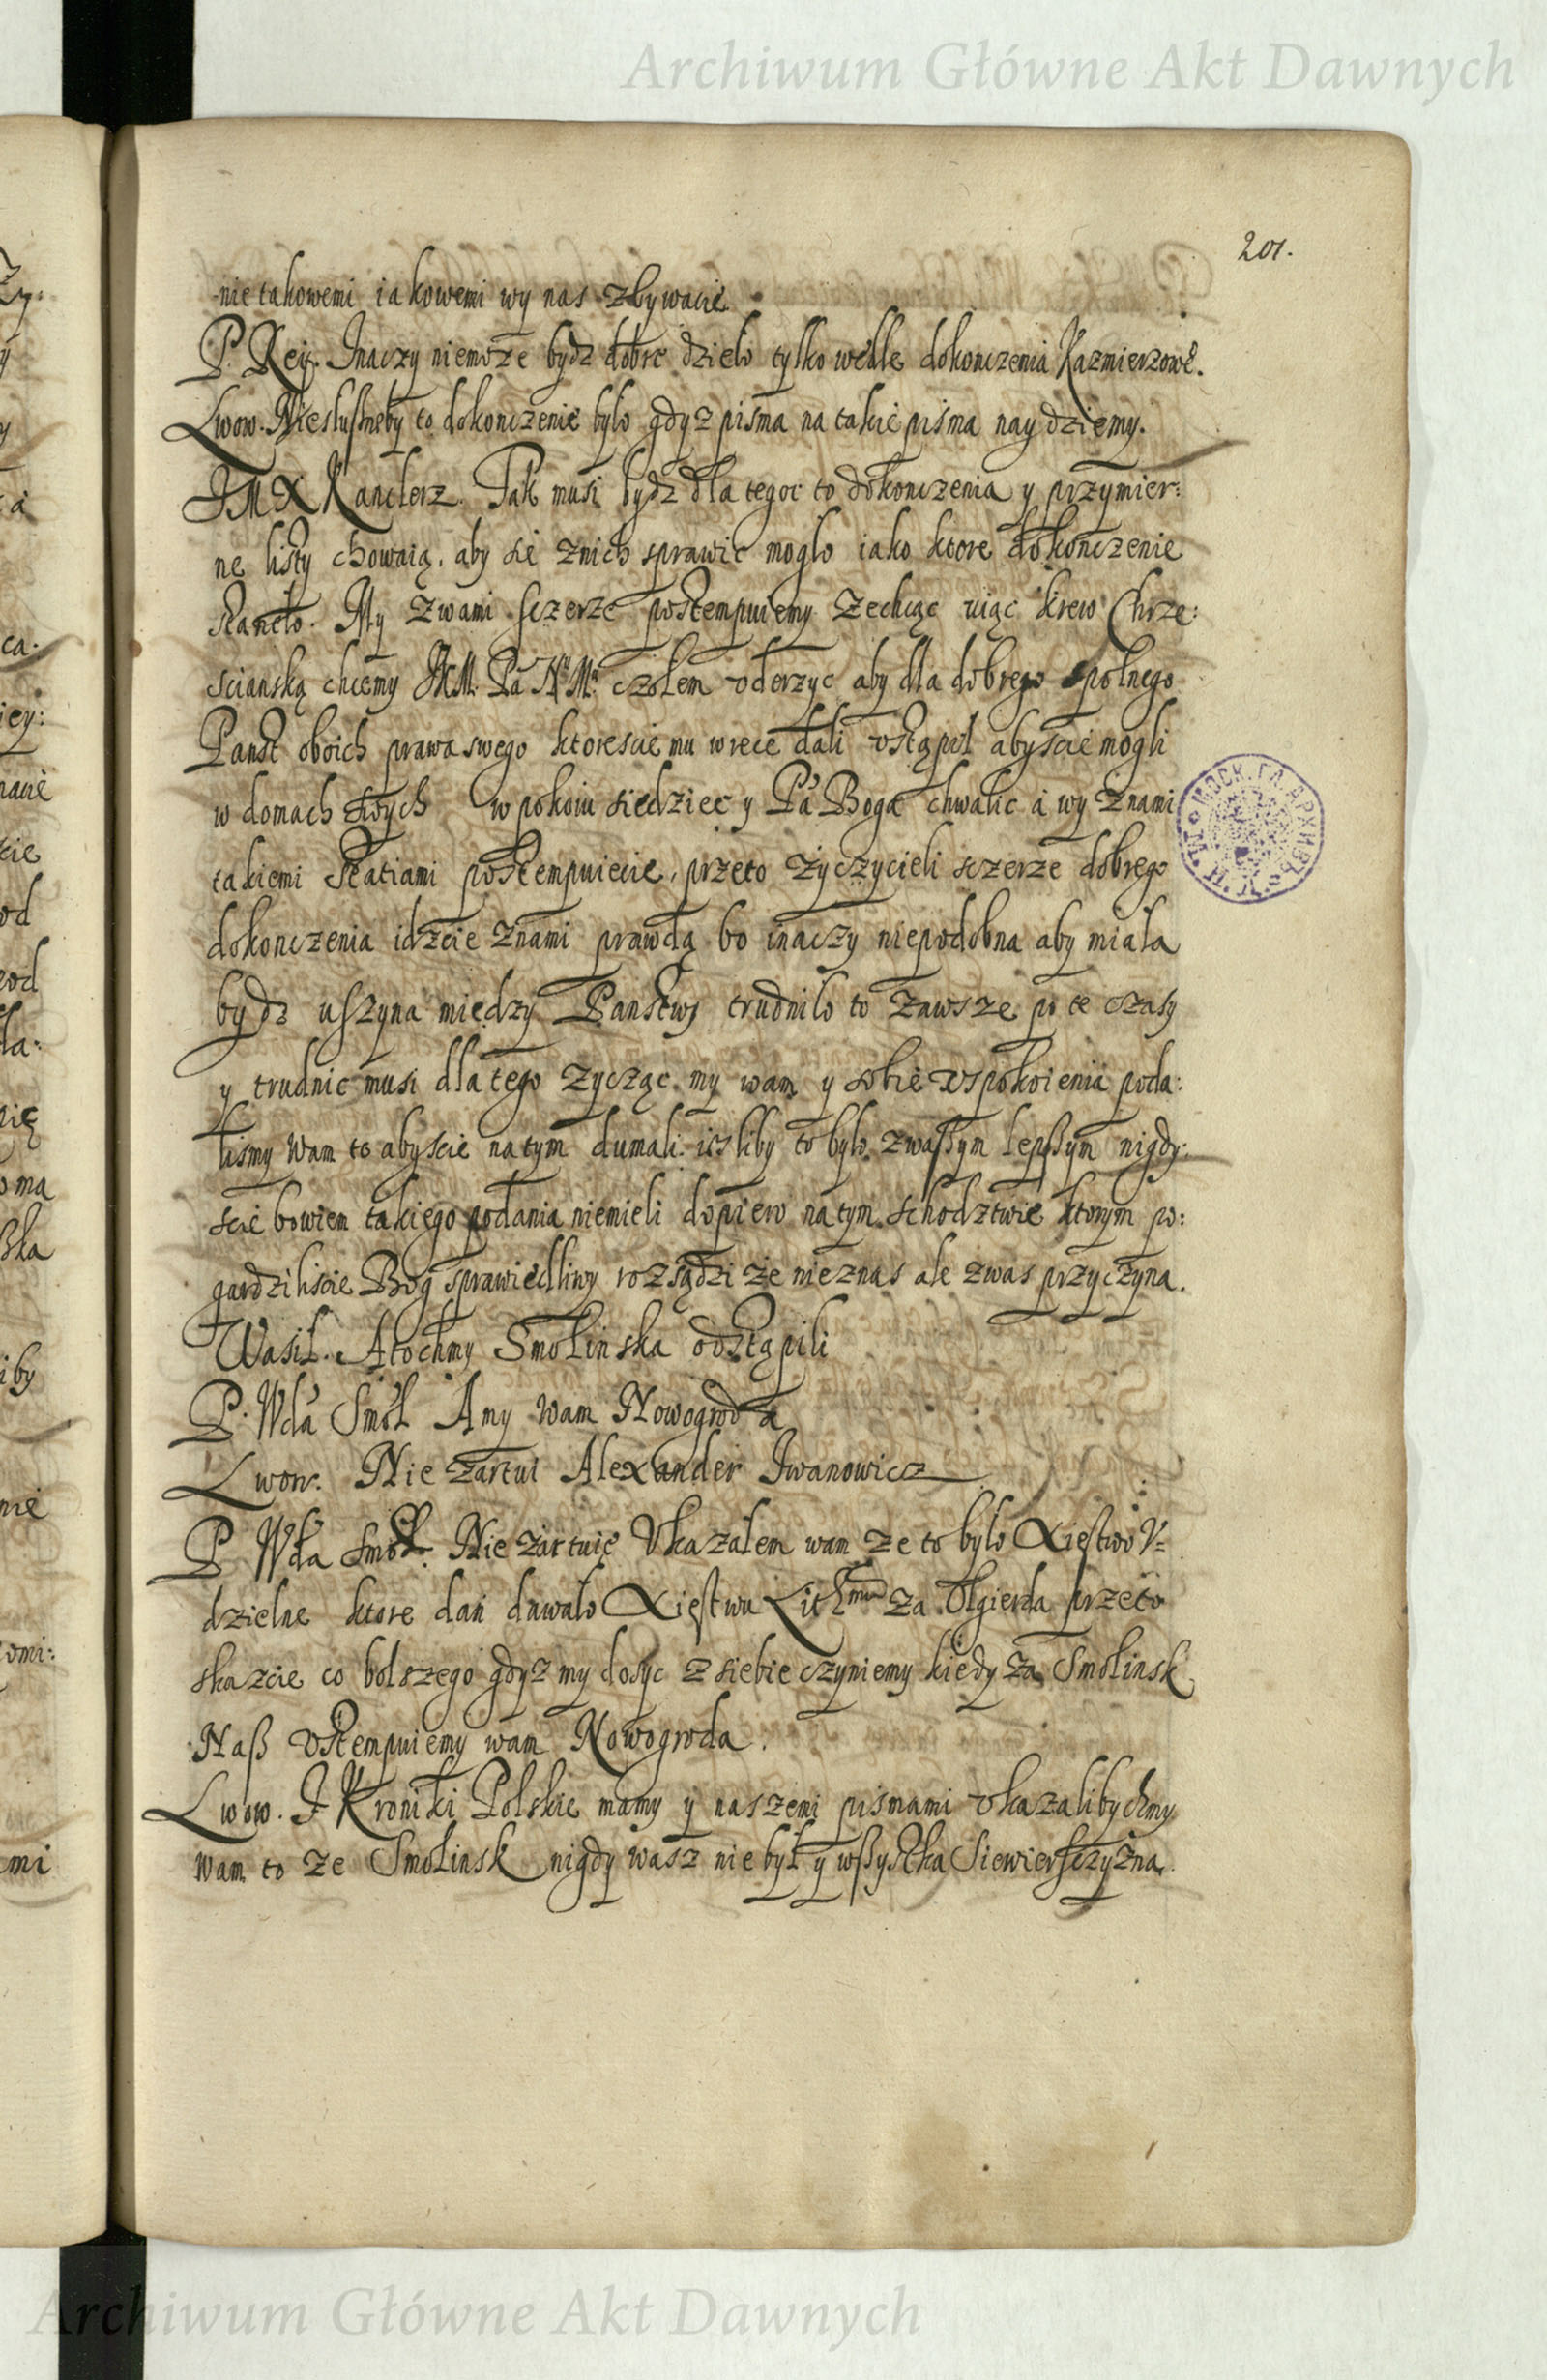 Archiwum Główne Akt Dawnych
201.
nie takowemi iakowemi wy nas zbywacie.
P. Rey. Inaczy niemoze bydz dobre dzieło tylko wedle dokonczenia Kazmierzowe.
Lwow. Niesłusneby to dokonczenie było gdyz pisma na takie pisma naydziemy.
JMX Kanclerz. Tak musi bydz dla tegoc to dokonczenia y przymier:
ne listy chowaią, aby sie znich sprawic mogło iako ktore dokonczenie
staneło. My zwami sczerze postempuiemy zechcąc uiąc krew Chrze:
scianską chcemy JKM. Pa Nº Mº czołem vderzyc aby dla dobrego spolnego
Panst oboich prawa swego ktoresciemu wrece dali vstąpił abyscie mogli
w domach swych w pokoiu siedziec y Pa Boga chwalic a wy znami
takiemi statiami postempuiecie, przeto zyczycieli sczerze dobrego
dokonczenia idzcie znami prawdą bo inaczy niepodobna aby miała
bydz uszyna między Panstwy trudniło to zawsze po te czasy
y trudnic musi dla tego zycząc my wam y sobie vspokoienia poda:
lismy wam to abyscie na tym dumali iesliby to było zwaszym lepszym nigdy:
scie bowiem takiego podania niemieli dopiero na tym schodztwie ktorym po:
gardziliscie Bog sprawiedliwy rozsądzi ze nieznas ale zwas przyczyna.
Wasil. Atochmy Smolinska odstąpili
P. Wda Smol Amy wam Nowogroda
Lwow. Nie zartui Alexander Iwanowicz
P Wda Smol. Nie zartuię Vkazałem wam ze to było Xięstwo V=
dzielne ktore dan dawało Xięstwu Lith. za Olgierda przeto
skazcie co bolszego gdyz my dosyc z siebie czyniemy kiedy za Smolinsk
Nasz vstempuiemy wam Nowogroda.
Lwow. I Kroniki Polskie mamy y naszemi pismami vkazalibychmy
wam to ze Smolinsk nigdy wasz nie był y wszystka Siewierszczyzna.
Archiwum Główne Akt Dawnych